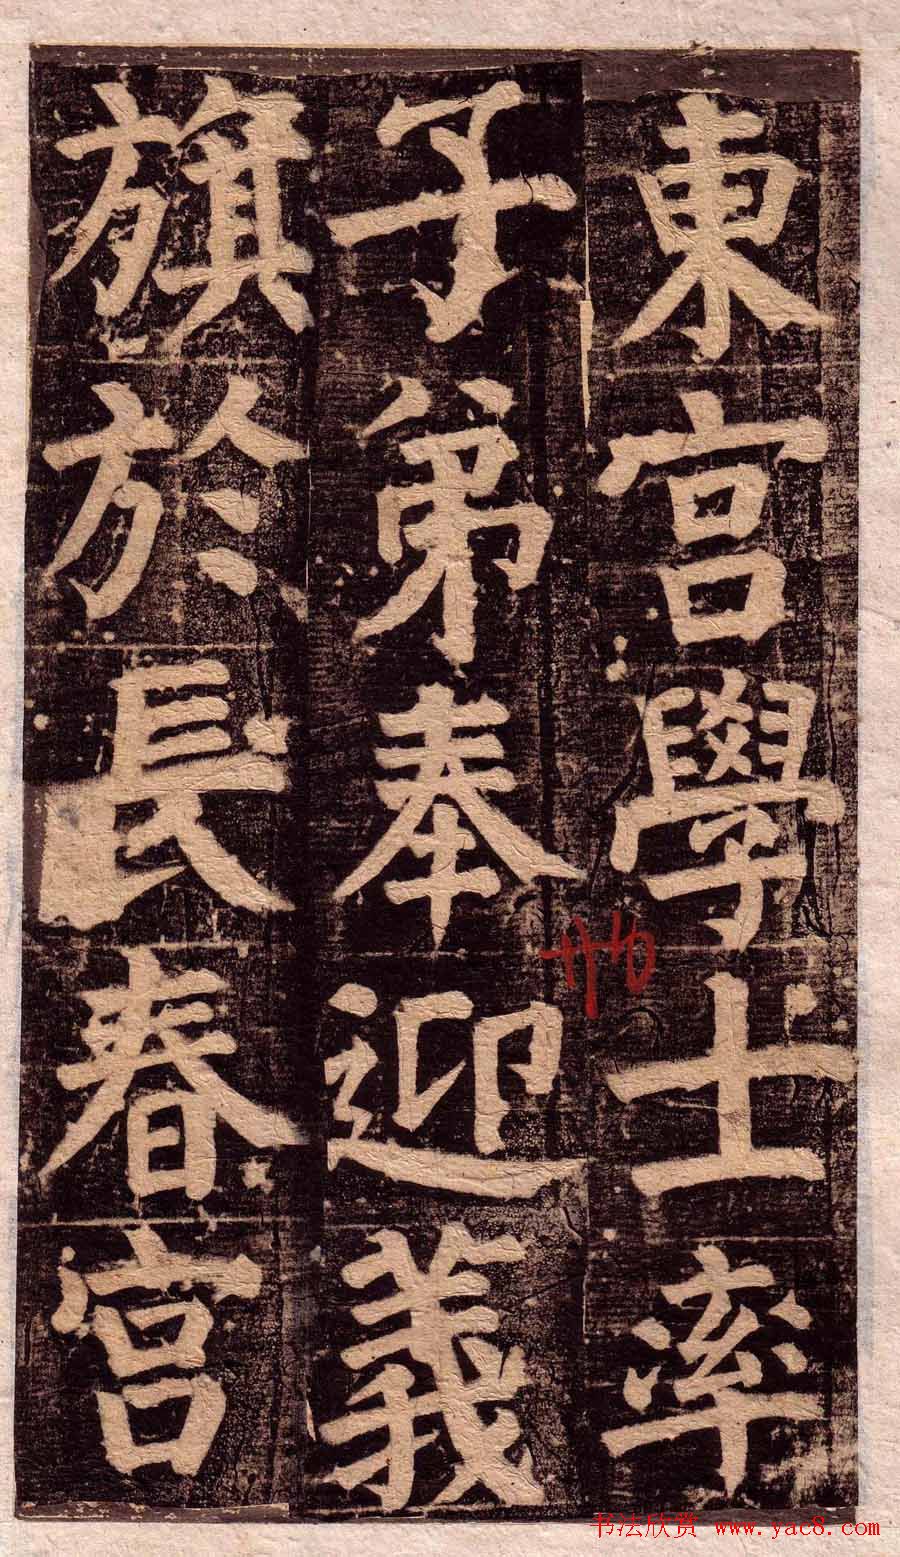 東宮學士率
子弟奉迎義
旗於長春宮
书法欣赏 www.yac8.com